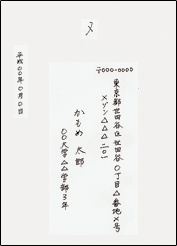 〆
平成00年0月0日
〒000-0000
東京都世田谷区世田谷〇丁目△番地×号
メゾン△△△二〇一
かもめ 太郎
〇〇大学△△学部3年